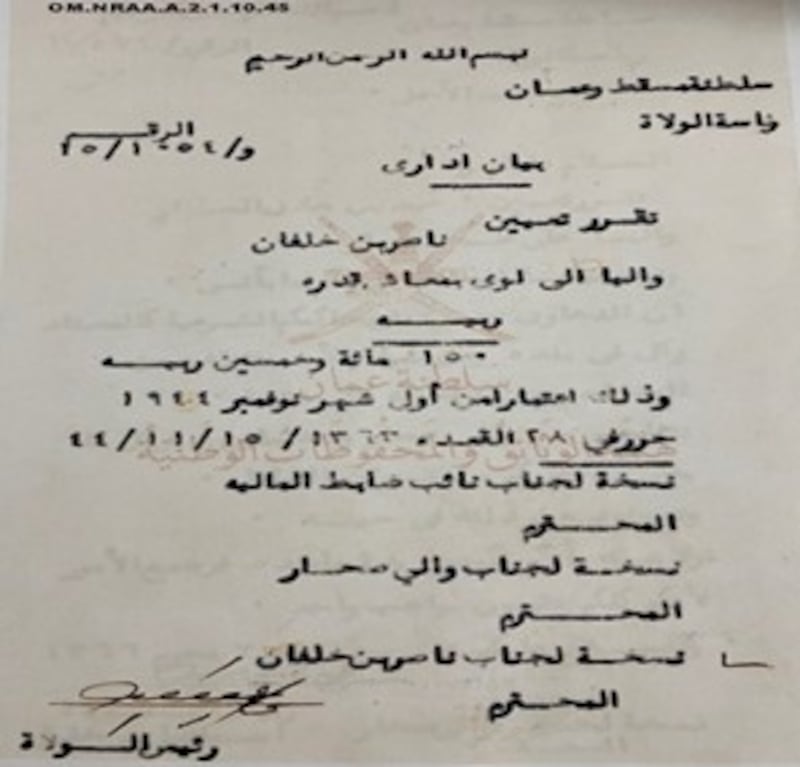 OM.NRAA.A.2.1.10.45
بسم الله الرحمن الرحيم
سلطنة مسقط وعمان
رئاسة الولاة
الرقم
و/١٠٥٤/٢٥
بيان اداري
تقرر تعيين ناصر بن خلفان
واليا الى لوى بمعاش قدره
ربيه
١٥٠ مائة وخمسين ربيه
وذلك اعتبارا من أول شهر نوفمبر ١٩٤٤
حرر في ٢٨ القعده ١٣٦٣ / ١٥/١١/٤٤
نسخة لجناب نائب ضابط الماليه
المحترم
نسخة لجناب والي صحار
المحترم
نسخة لجناب ناصر بن خلفان
المحترم
رئيس الولاة
سلطنة عمان
هيئة الوثائق والمحفوظات الوطنية